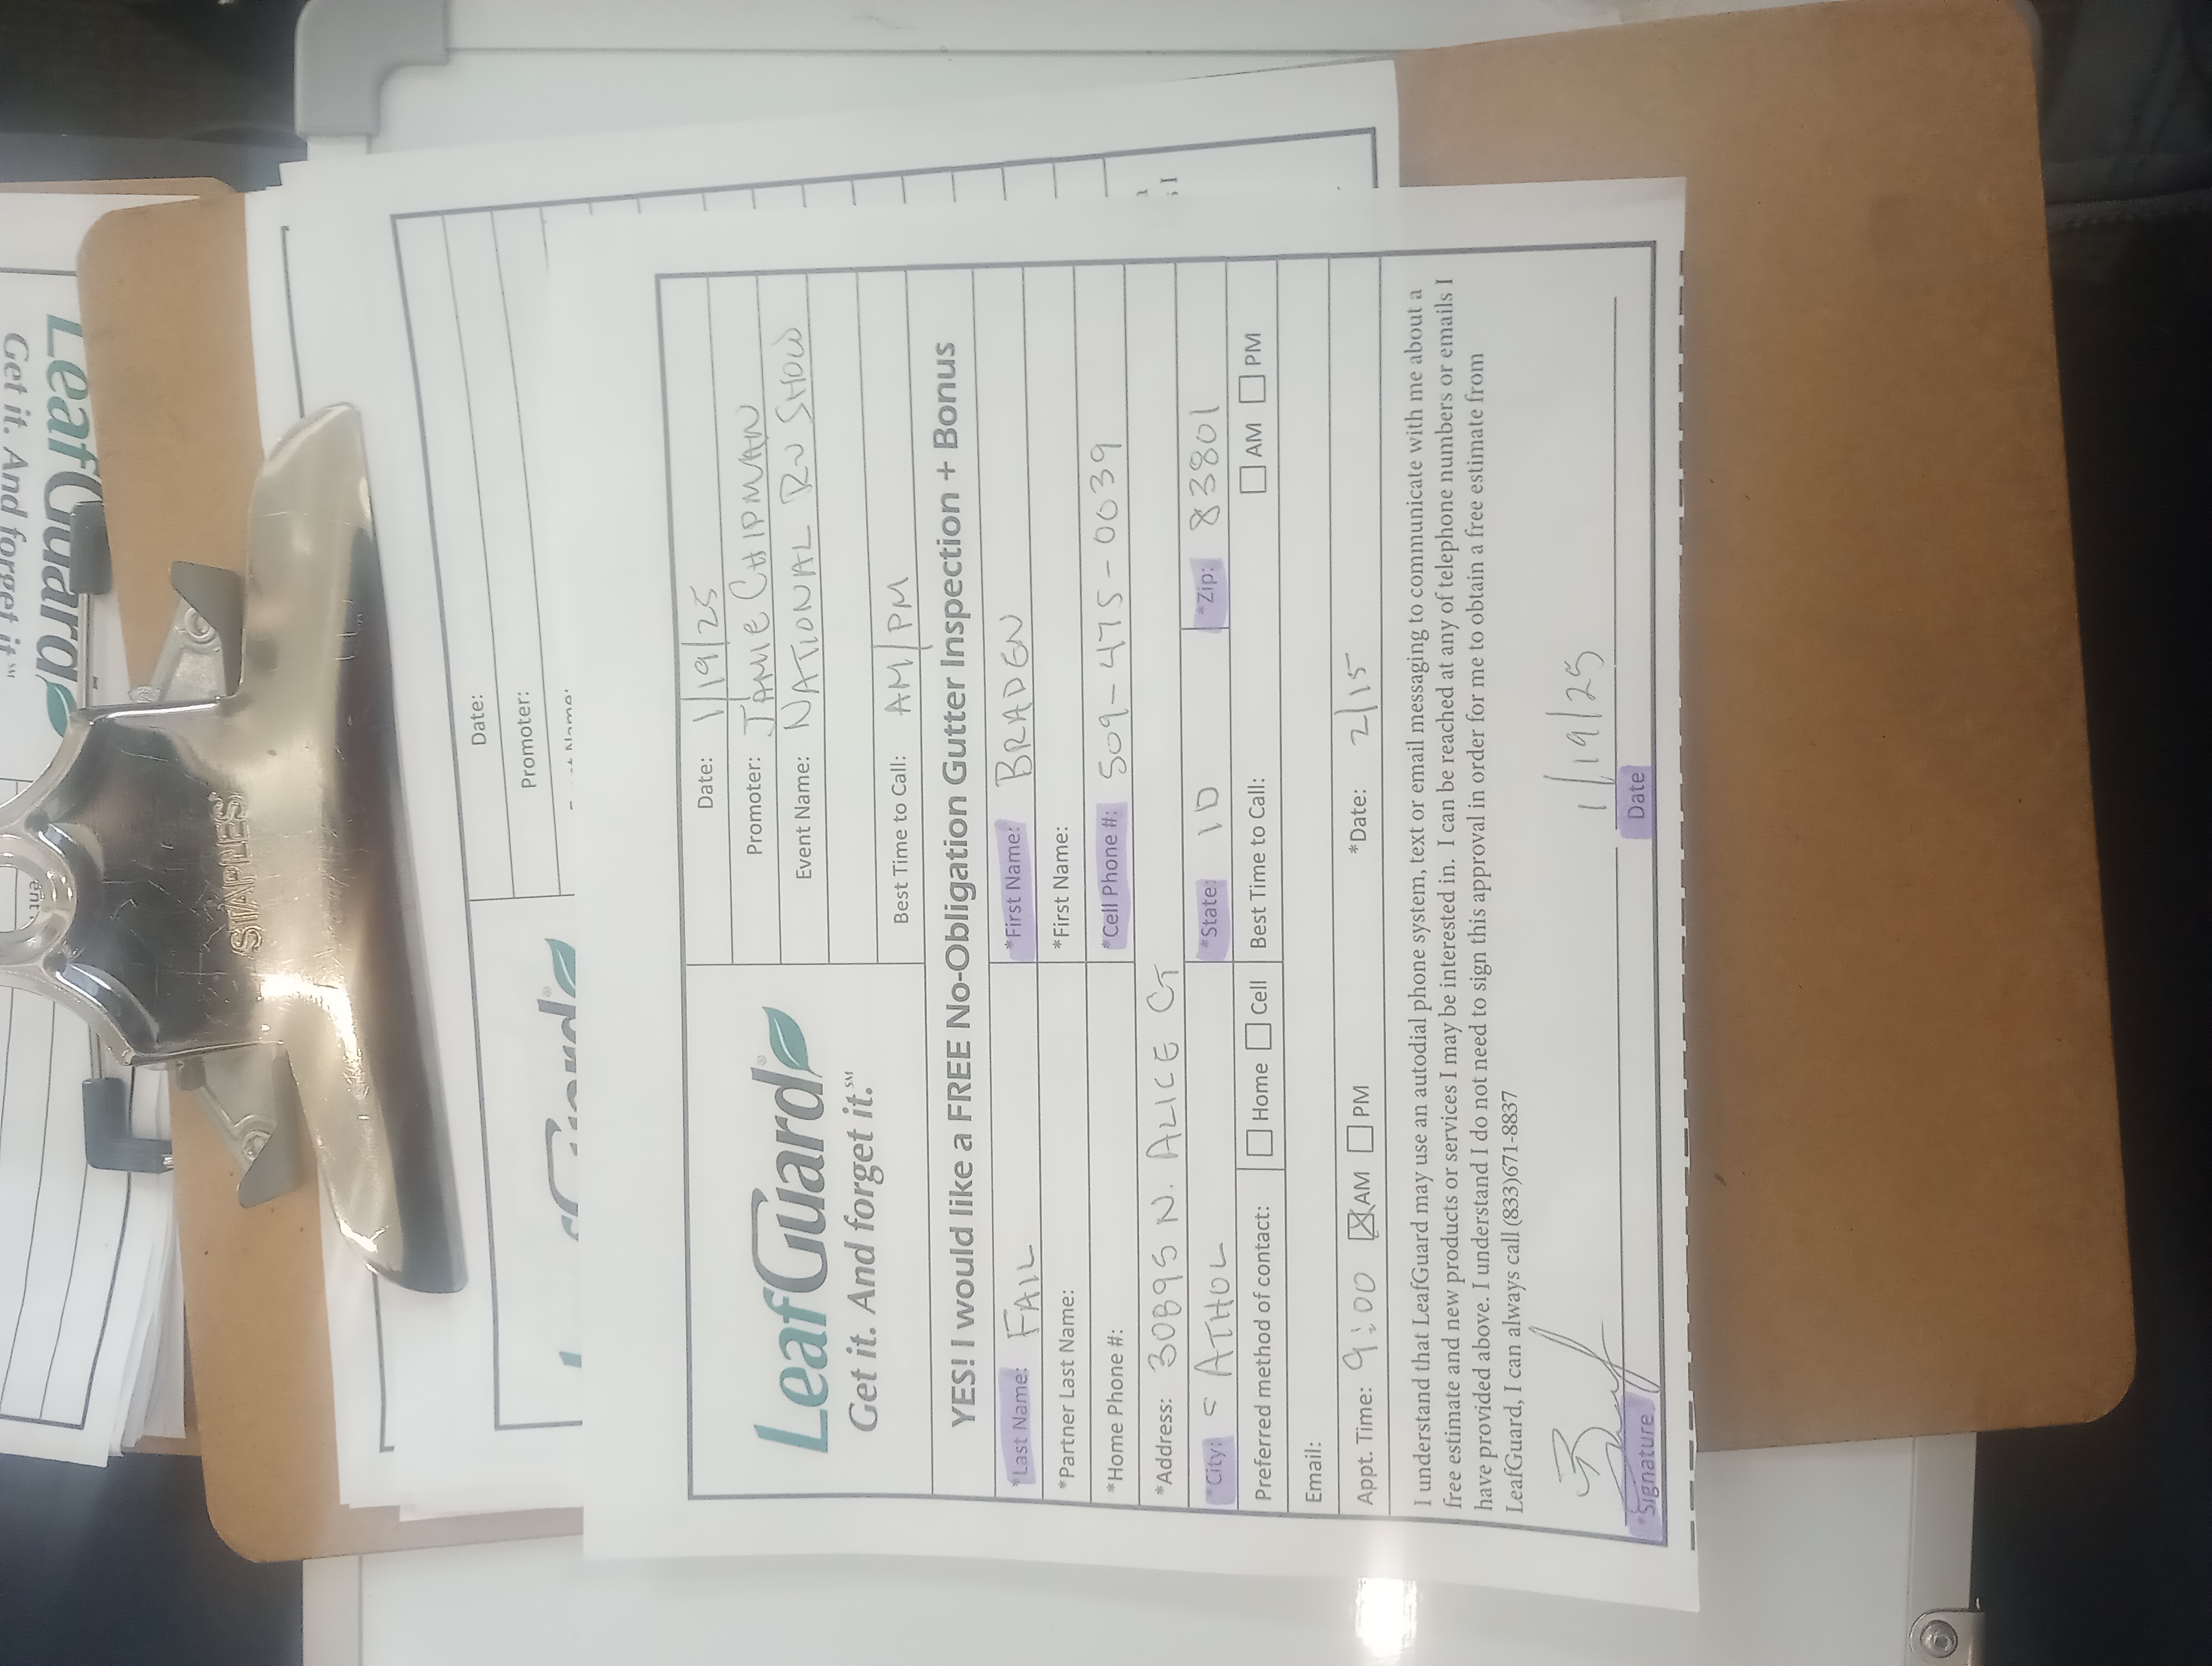 Get it. And forget it.℠
LeafGuard
STAPLES
Date:
Promoter:
LeafGuard®
Name:
LeafGuard®
Get it. And forget it.℠
Date: 1/19/25
Promoter: JAMIE CHIPMAN
Event Name: NATIONAL RV SHOW
Best Time to Call: AM/PM
YES! I would like a FREE No-Obligation Gutter Inspection + Bonus
*Last Name: FAIL *First Name: BRADEN
*Partner Last Name: *First Name:
*Home Phone #: *Cell Phone #: 509-475-0039
*Address: 30895 N. ALICE CT
*City: ATHOL *State: ID *Zip: 83801
Preferred method of contact: Home Cell Best Time to Call: AM PM
Email:
Appt. Time: 9:00 AM PM *Date: 2/15
I understand that LeafGuard may use an autodial phone system, text or email messaging to communicate with me about a
free estimate and new products or services I may be interested in. I can be reached at any of telephone numbers or emails I
have provided above. I understand I do not need to sign this approval in order for me to obtain a free estimate from
LeafGuard, I can always call (833)671-8837
1/19/25
*Signature Date